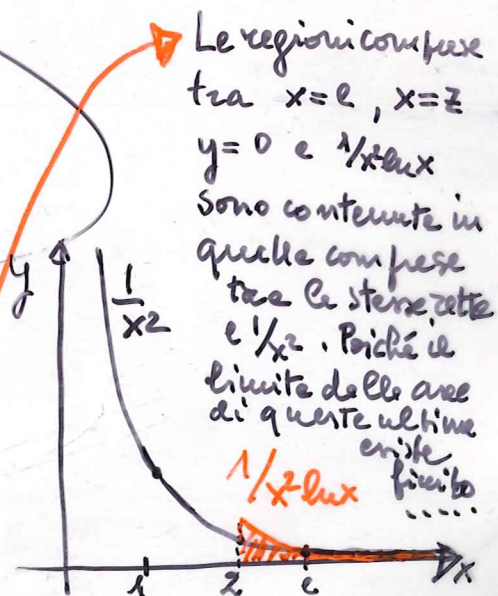 Le regioni comprese
tra x=e, x=z
y=0 e 1/x²lnx
sono contenute in
quelle comprese
tra le stesse rette
e 1/x². Poiché il
limite delle aree
di queste ultime
esiste
finito
.....
y
1/x2
1/x²lnx
1
2
e
x